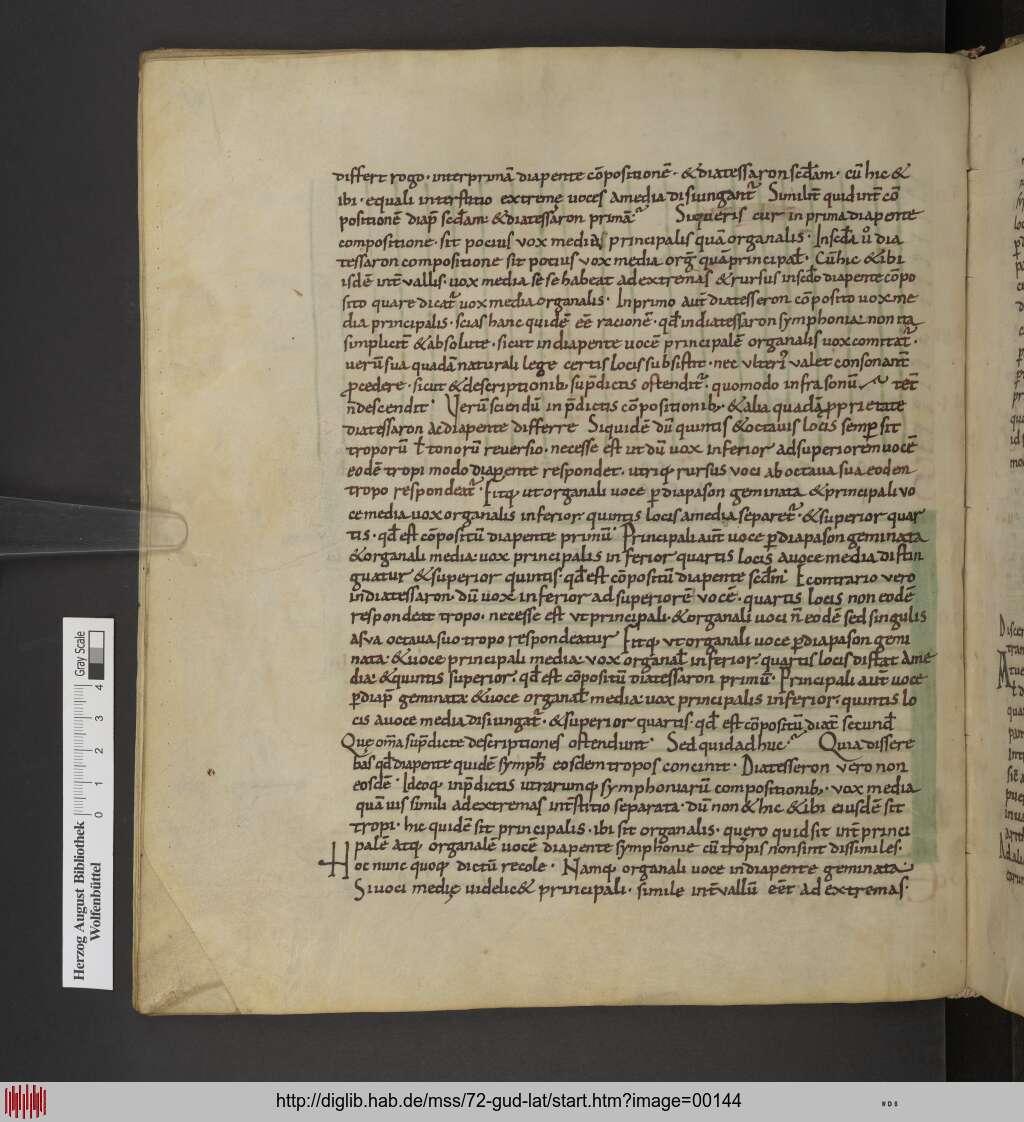 differt rogo · inter primā diapente cōpositionē · & diatessaron scd̄am · cū hic &
ibi · equali interstitio extremę uoces a media disiungant᷑ Similit̄ quid int̄ cō
positionē diap̄ scd̄am · & diatessaron primā Si queris cur in prima diapente
compositione · sit pocius vox media principalis quā organalis · In scd̄a u̇ dia
tessaron compositione sit pocius vox media orḡ quā principal̄ · Cū hic & ibi
isdē int̄vallis · uox media se se habeat ad extremas & rursus in scd̄o diapente cōpo
sito quare dicat᷑ uox media organalis · In primo aut̄ diatesseron cōposito uox me
dia principalis · scias hanc quidē eē racionē · qd̄ in diatessaron symphonia non ita
simplicit̄ & absolute · sicut in diapente uocē principalē organalis uox comitat᷑ ·
uerū sua quadā naturali lege certis locis subsistit · nec ulteri᷒ valet consonant̄
ꝓcedere · sicut & descriptionib; sup̄dictis ostendit᷑ · quomodo infra sonū tet̄
n̄ descendit · Verū sciendū in p̄dictis cōpositionib; · & alia quadā proprietate
diatessaron ac diapente differre Siquidē dū quintis & octauis locis semꝑ sit
troporū ł tonorū reuersio · necesse est ut dū uox inferior ad superiorem uocē
eodē tropi modo diapente respondet · utriq; rursus voci ab octaua sua eodem
tropo respondeat᷑ · Fitq; ut organali uoce ꝑ diapason geminata & principali vo
ce media uox organalis inferior quintis locis a media separet᷑ · & superior quar
tis · qd̄ est cōpositū diapente primū · Principali aut̄ uoce ꝑ diapason geminata
& organali media · uox principalis inferior quartis locis a uoce media distin
guatur & superior quintis · qd̄ est cōpositū diapente scd̄m · E contrario vero
in diatessaron · dū uox inferior ad superiorē vocē · quartis locis non eodē
respondeat tropo · necesse est ut principali · & organali uoci n̄ eodē sed singulis
a sua octaua suo tropo respondeatur Fitq; ut organali uoce ꝑ diapason gemi
nata · & uoce principali media · vox organal̄ inferior quartis locis distat a me
dia · & quintis superior · qd̄ est cōpositū diatessaron primū · Principali aut̄ uoce
ꝑ diap̄ geminata · & uoce organal̄ media · uox principalis inferior · quintis lo
cis a uoce media disiungat᷑ · & superior quartis · qd̄ est cōpositū diat̄ secund̄
Quę om̄a sup̄dicte descriptiones ostendunt · Sed quid ad huc · Quia dissere
bas qd̄ diapente quidē symph̄ eosdem tropos concinit · Diatesseron vero non
eosdē · Ideoq; in p̄dictis utrarumq; symphoniarū compositionib; · vox media
quāuis simili ad extremas int̄stitio separata · dū non & hic & ibi eiusdē sit
tropi · hic quidē sit principalis · ibi sit organalis · quero quid sit int̄ princi
palē atq; organalē uocē diapente symphonie cū tropis non sint dissimiles ·
Hoc nunc quoq; dictū recole · Namq; organali uoce in diapente geminata ·
Si uoci medię uidelic& principali · simile int̄vallū eēt ad extremas ·
Herzog August Bibliothek
Wolfenbüttel
0 1 2 3 4
Gray Scale
http://diglib.hab.de/mss/72-gud-lat/start.htm?image=00144
WDB